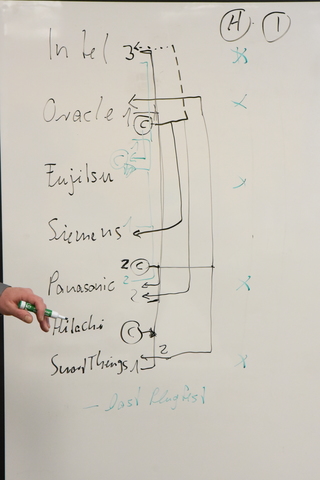 H I
Intel 3 X
Oracle 1 X
C
C
Fujitsu
Siemens 1
2 C
Panasonic 2 X
2
Hitachi C
2
SmartThings 1 X